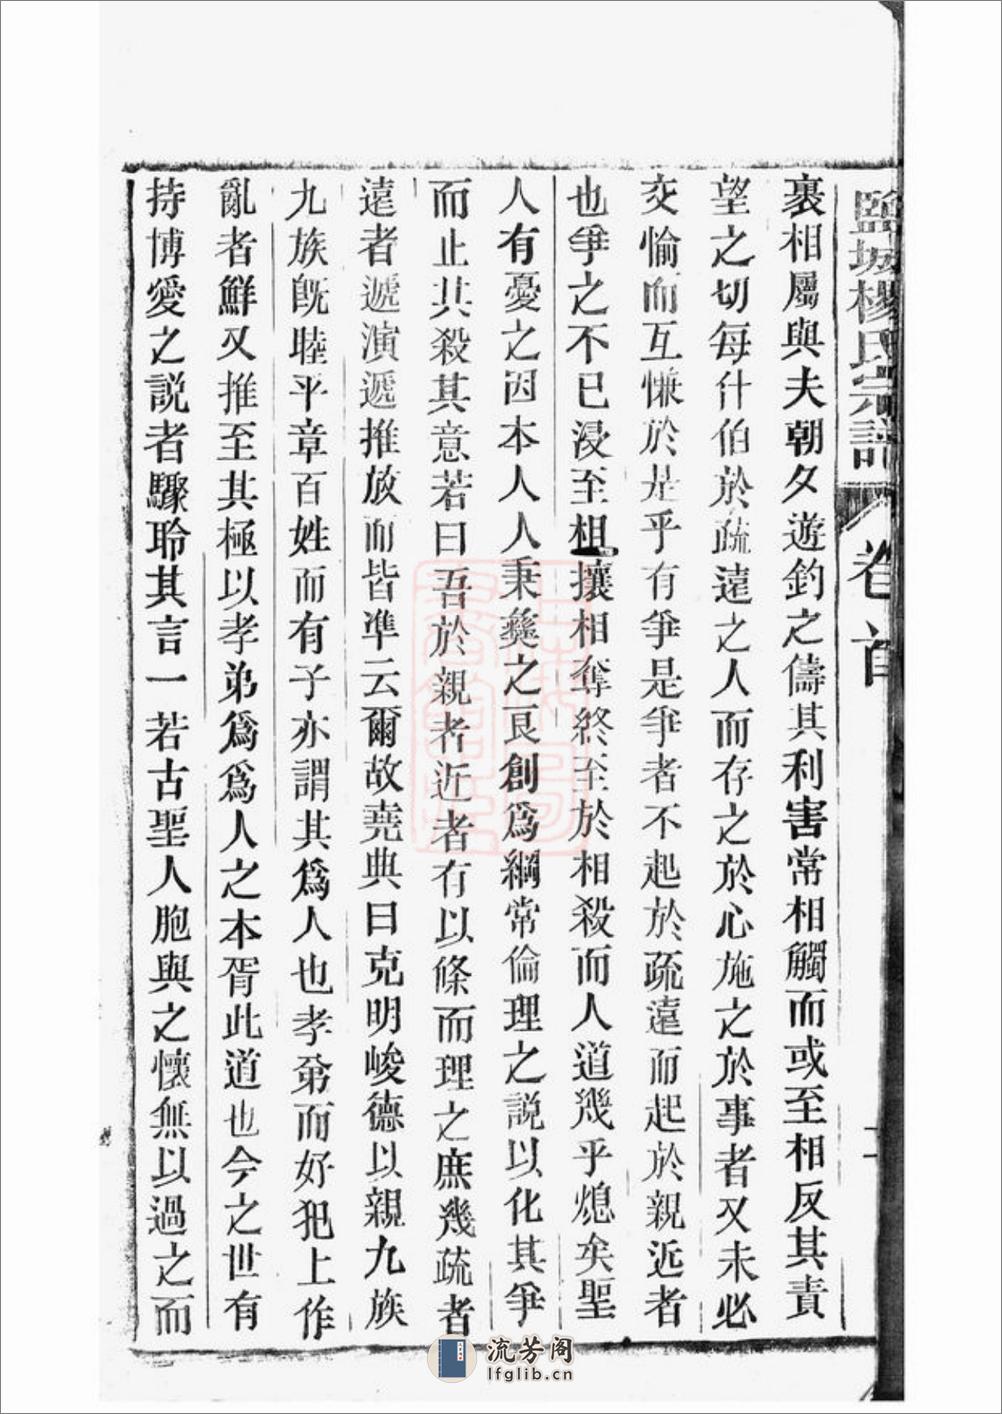 鹽城楊氏宗譜 卷首
裏相屬與夫朝夕遊釣之儔其利害常相觸而或至相反其責
望之切每什伯於疏遠之人而存之於心施之於事者又未必
交愉而互慊於是乎有爭是爭者不起於疏遠而起於親近者
也爭之不已浸至相攘相奪終至於相殺而人道幾乎熄矣聖
人有憂之因本人人秉彝之良創爲綱常倫理之説以化其爭
而止其殺其意若曰吾於親者近者有以條而理之庶幾疏者
遠者遞演遞推放而皆準云爾故堯典曰克明峻德以親九族
九族旣睦平章百姓而有子亦謂其爲人也孝弟而好犯上作
亂者鮮又推至其極以孝弟爲爲人之本胥此道也今之世有
持博愛之説者驟聆其言一若古聖人胞與之懷無以過之而
流芳阁
lfglib.cn